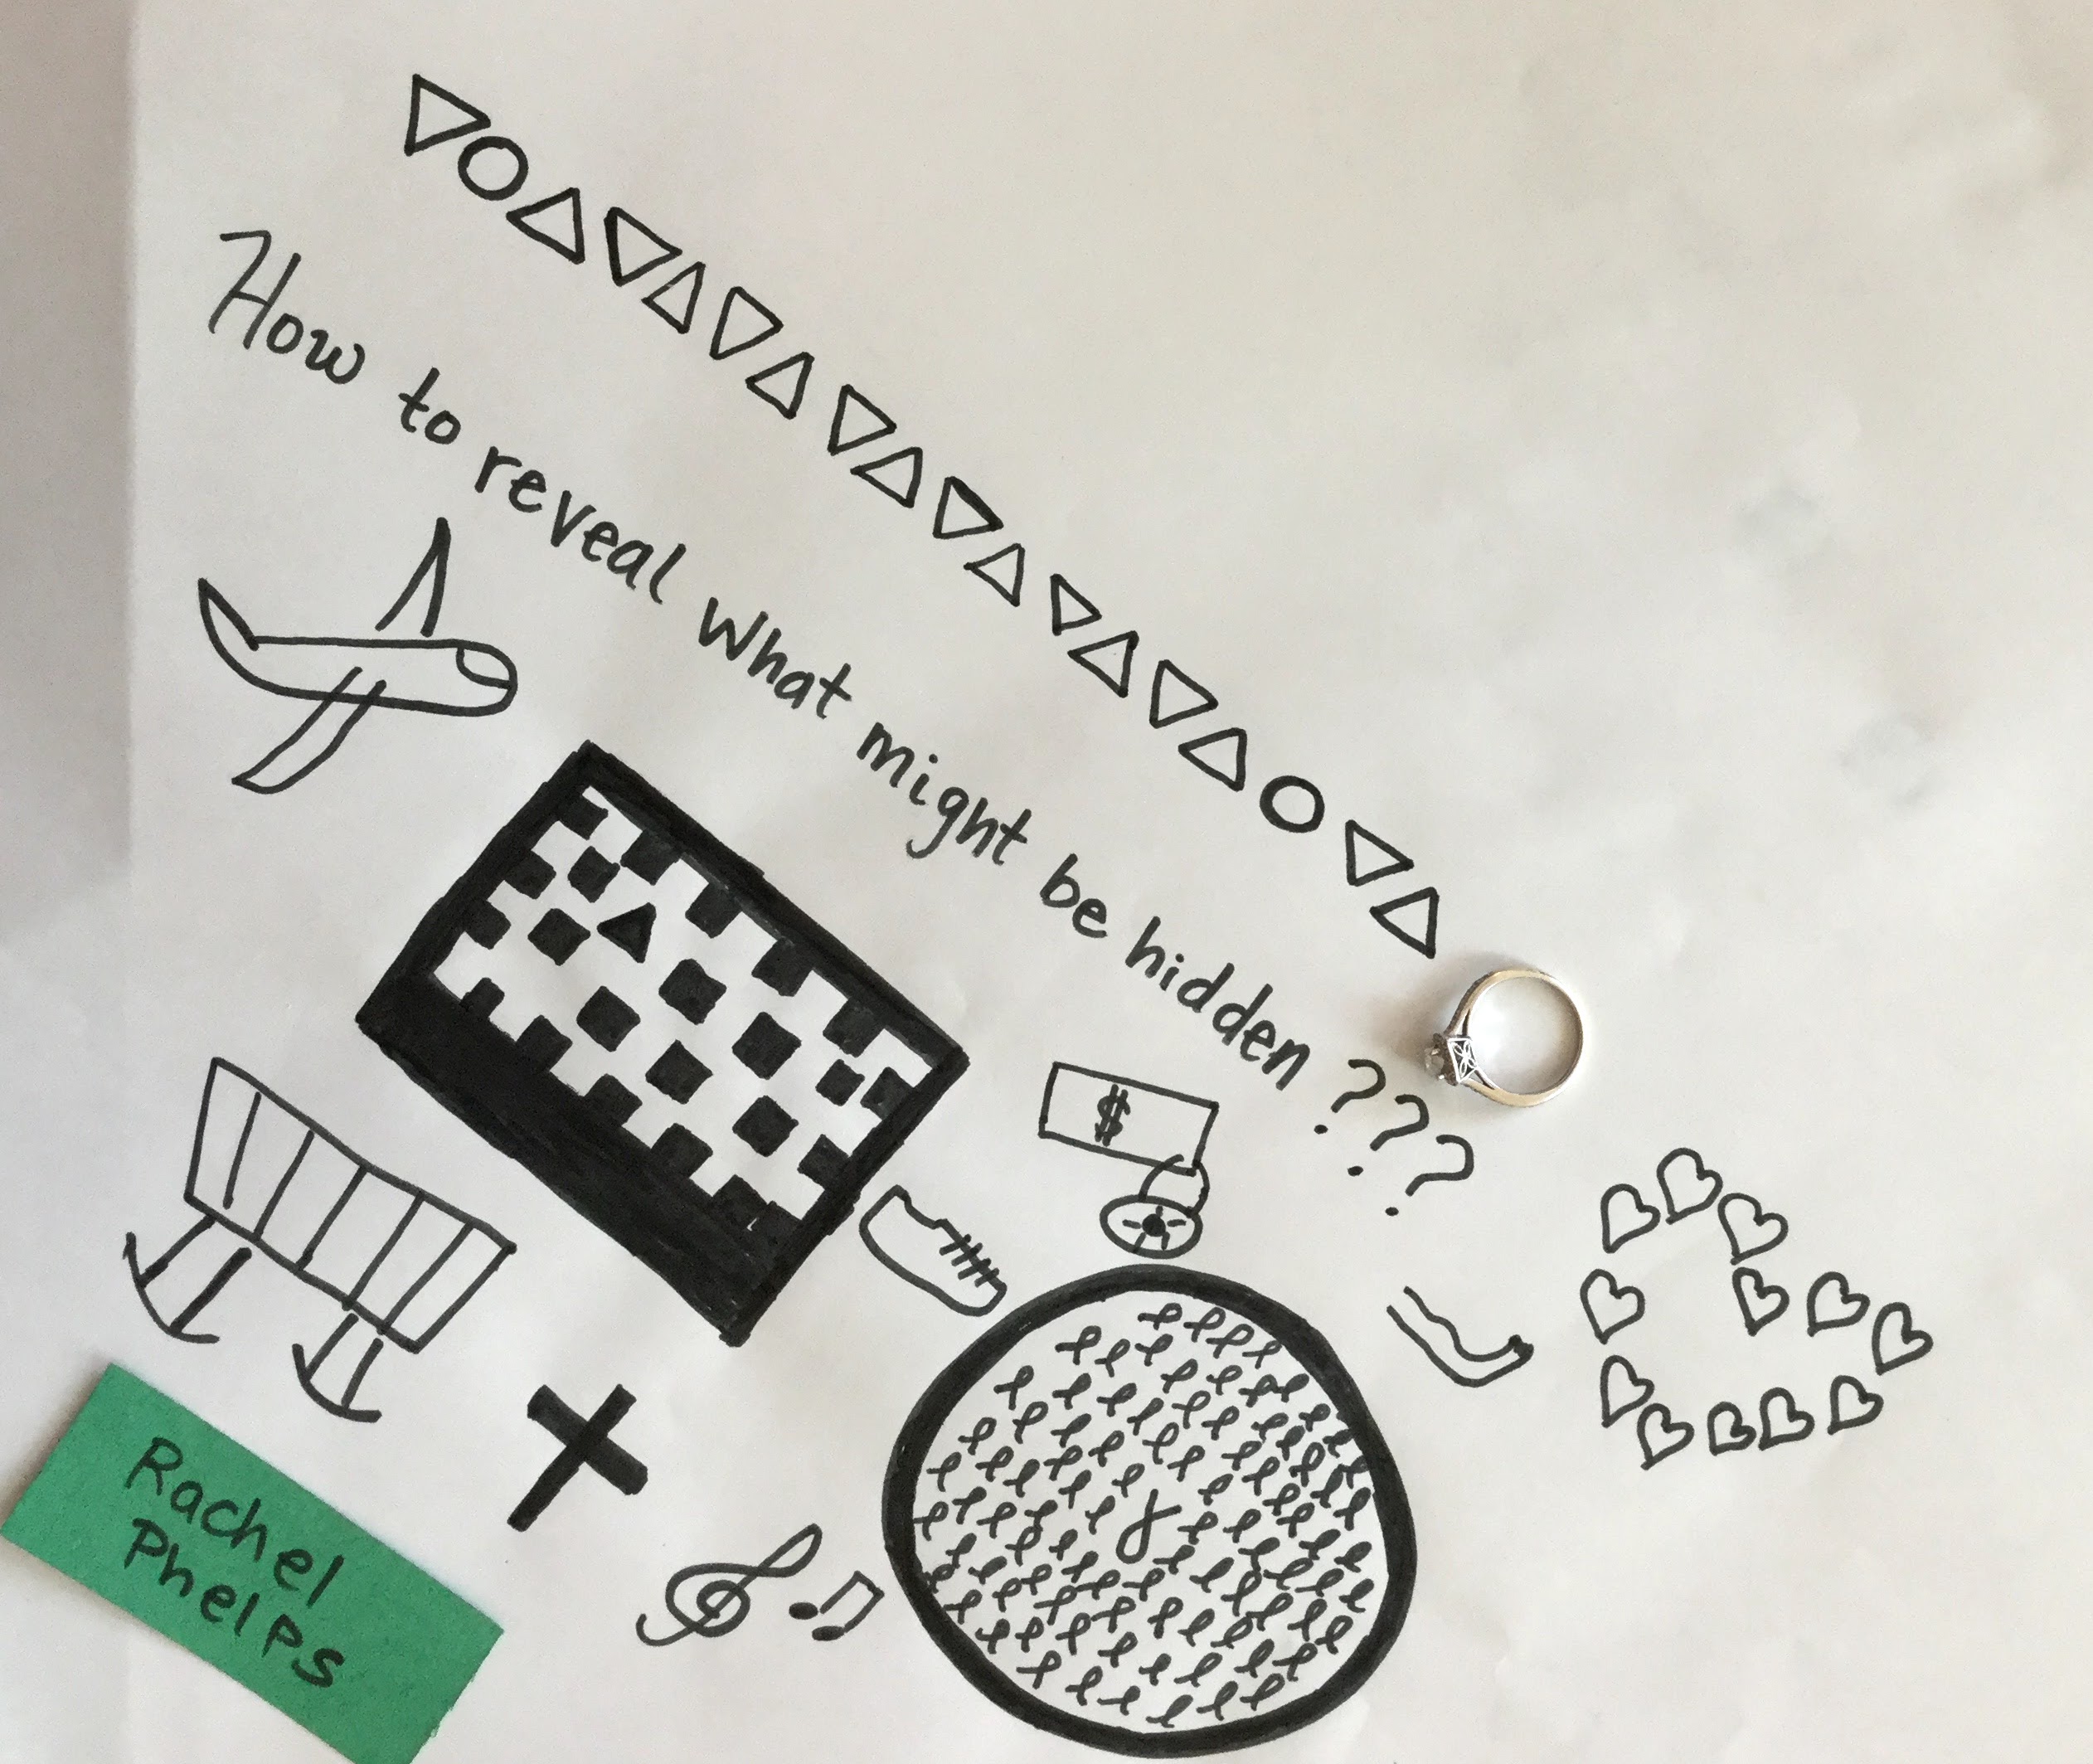 How to reveal what might be hidden ???
$
Rachel
Phelps